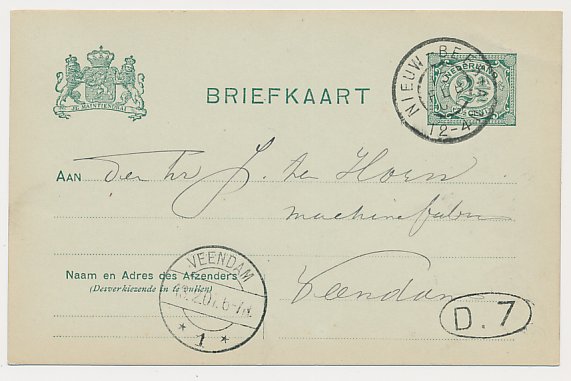 JE MAINTIENDRAI
BRIEFKAART
NEDERLAND
2½
CENT
12-4
AAN den Hr J. ter Horn
machinefabr
Veendam
Naam en Adres des Afzenders
(Desverkiezende in te vullen).
VEENDAM
2.07. 6-7
* 1 *
D. 7